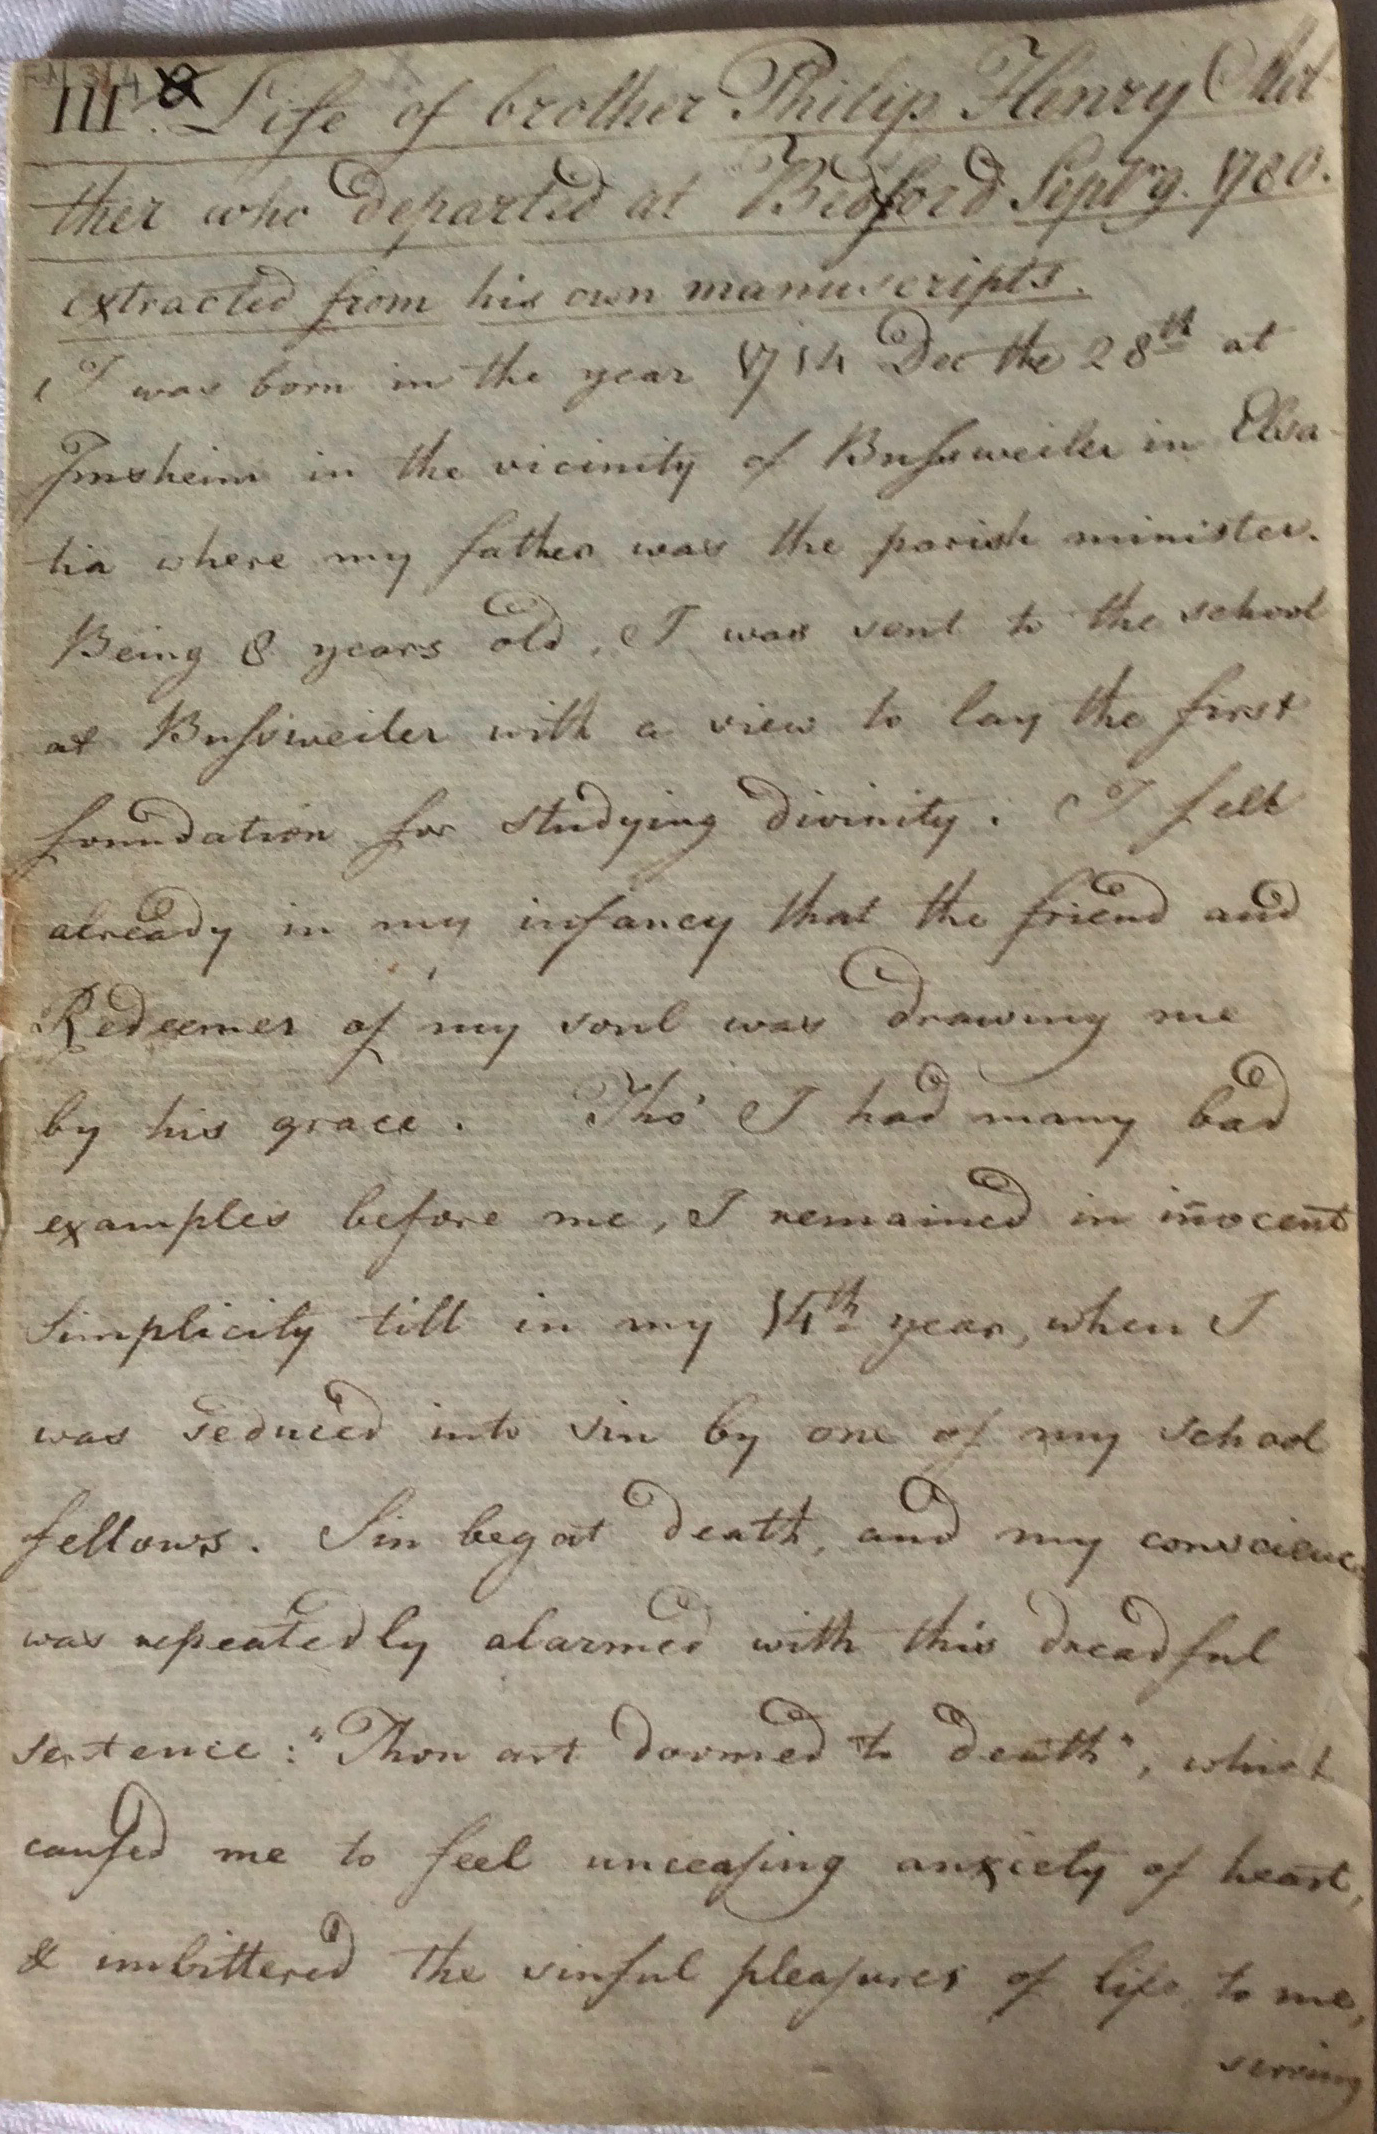 III. Life of brother Philip Henry Mol
ther who departed at Bedford Septr 9. 1780.
extracted from his own manuscripts.
I was born in the year 1714 Dec the 28th at
Imsheim in the vicinity of Bussweiler in Elsa-
tia where my father was the parish minister.
Being 8 years old, I was sent to the school
at Bussweiler with a view to lay the first
foundation for studying divinity. I felt
already in my infancy that the friend and
Redeemer of my soul was drawing me
by his grace. Tho' I had many bad
examples before me, I remained in iñocent
simplicity till in my 14th year, when I
was seduced into sin by one of my school
fellows. Sin begat death, and my conscience
was repeatedly alarmed with this dreadful
sentence: "Thou art doomed to death", which
caused me to feel unceasing anxiety of heart,
& imbittered the sinful pleasures of life to me,
serving